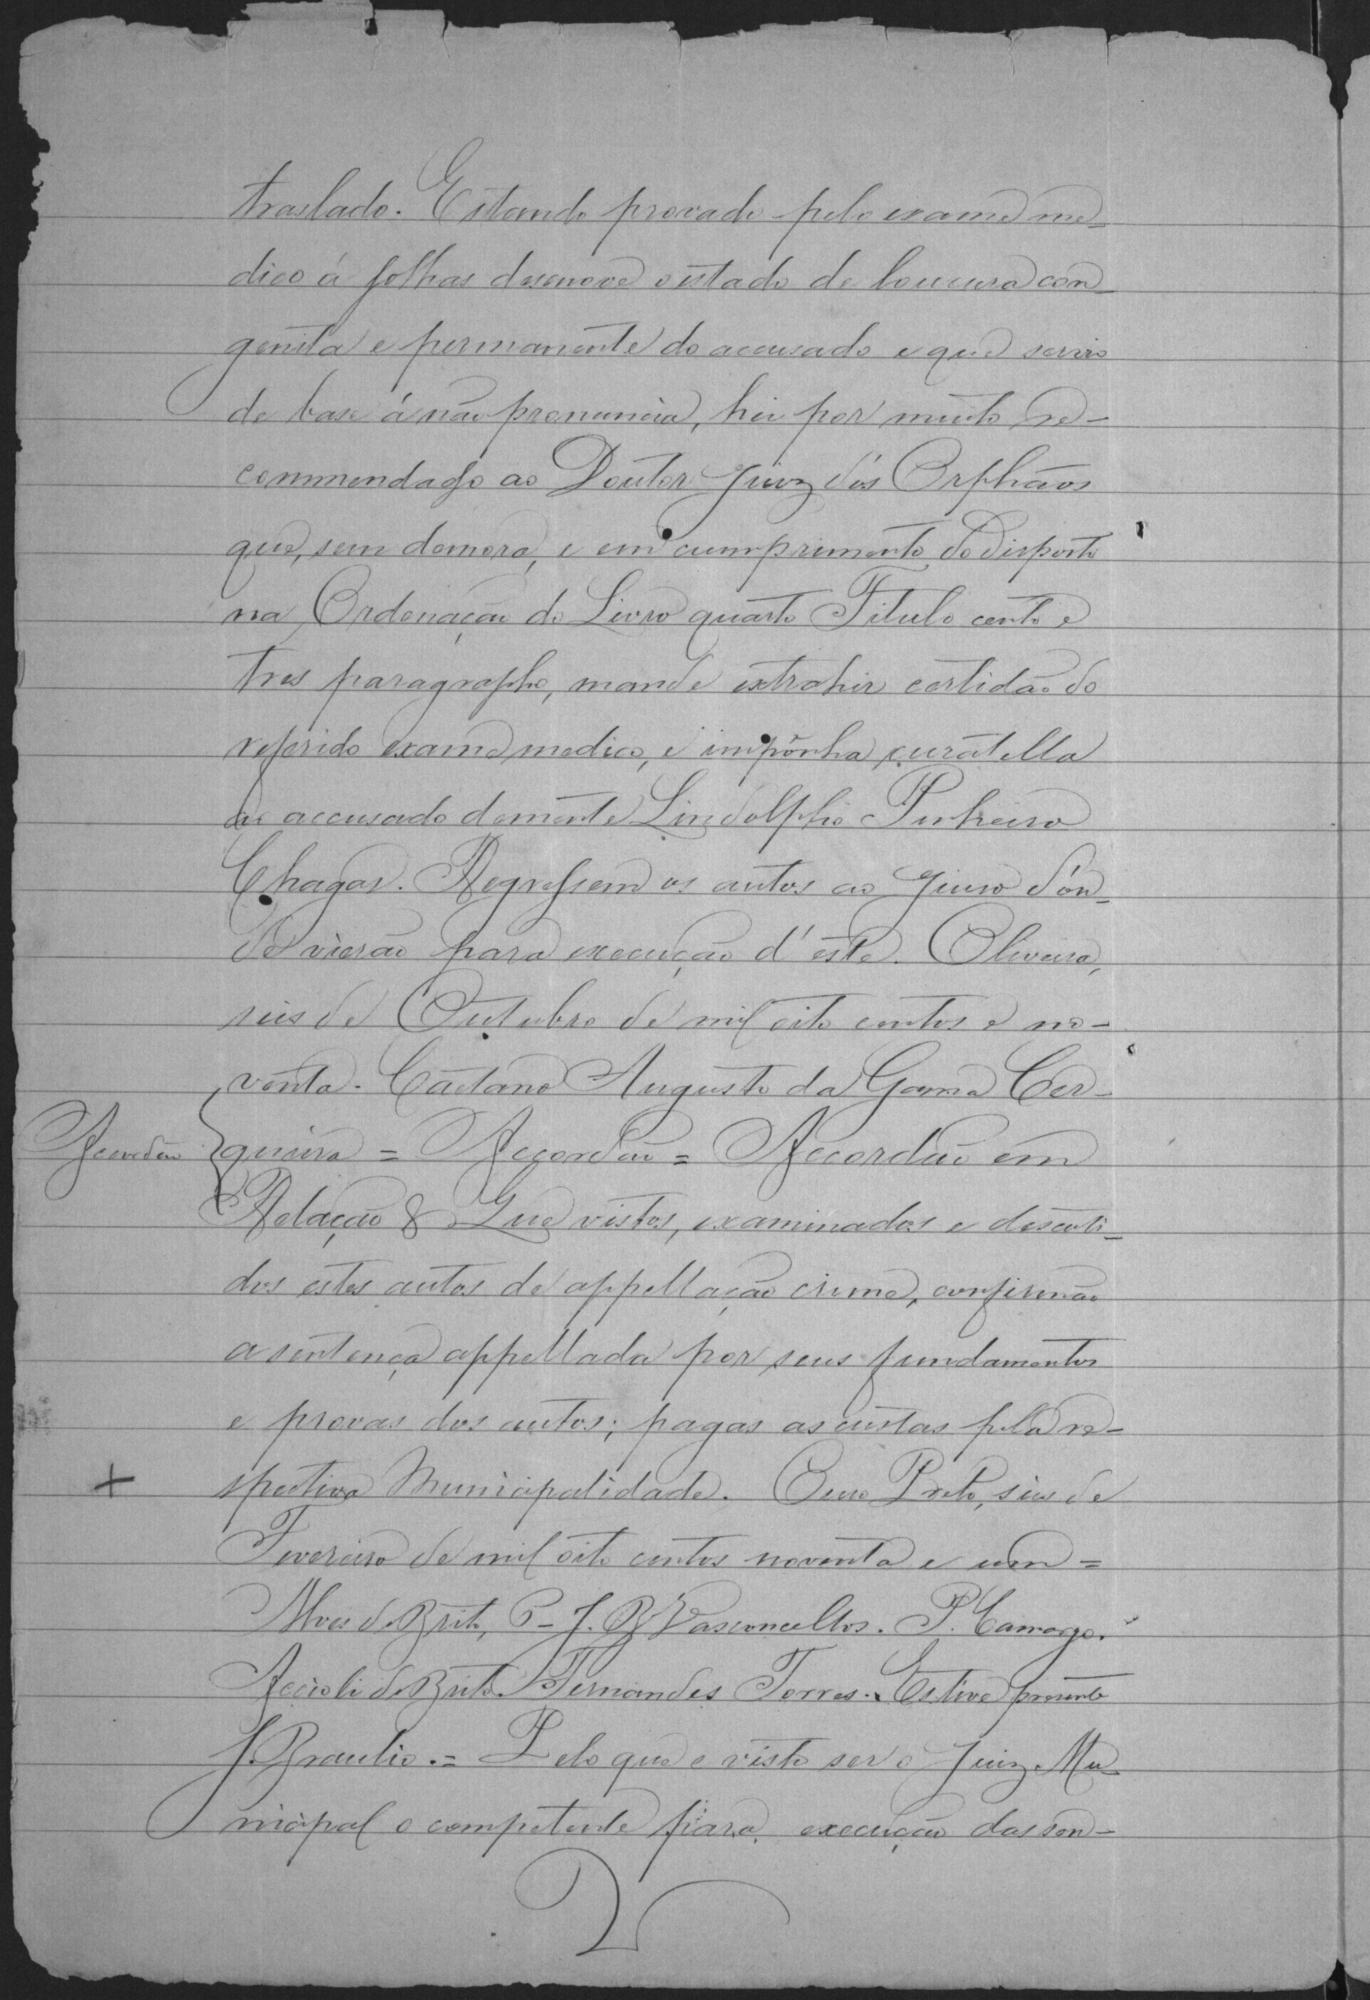 traslado. Estando provado pelo exame me-
dico á folhas desenove o estado de loucura con-
genita e permanente do accusado e que servio
de base á não pronuncia, hei por muito re-
commendado ao Doutor Juiz dós Orphãos
que, sem demora, e em cumprimento do disposto
na Ordenação do Livro quarto Titulo cento e
tres paragrapho, mande extrahir certidão do
referido exame medico, e impônha curatella
ao accusado demente Lindolpho Pinheiro
Chagas. Regressem os autos ao Juiso d'ón-
de vierão para execução d'este. Oliveira,
seis de Outubro de mil oito centos e no-
venta. Caetano Augusto da Gama Cer-
Accordão
queira = Accordão = Accordão em
Relação & Que vistos, examinados e discuti-
dos estes autos de appellação crime, confirmão
a sentença appellada por seus fundamentos
e provas dos autos; pagas as custas pela re-
spectiva Municipalidade. Ouro Preto, seis de
Fevereiro de mil oito centos noventa e um =
Alves de Brito, P- J. B Vasconcellos. P. Camargo.
Accioli de Brito. Fernandes Torres. Estive presente
J. Braulio. = Pelo que e visto ser o Juiz Mu-
nicipal o competente para execução das sen-